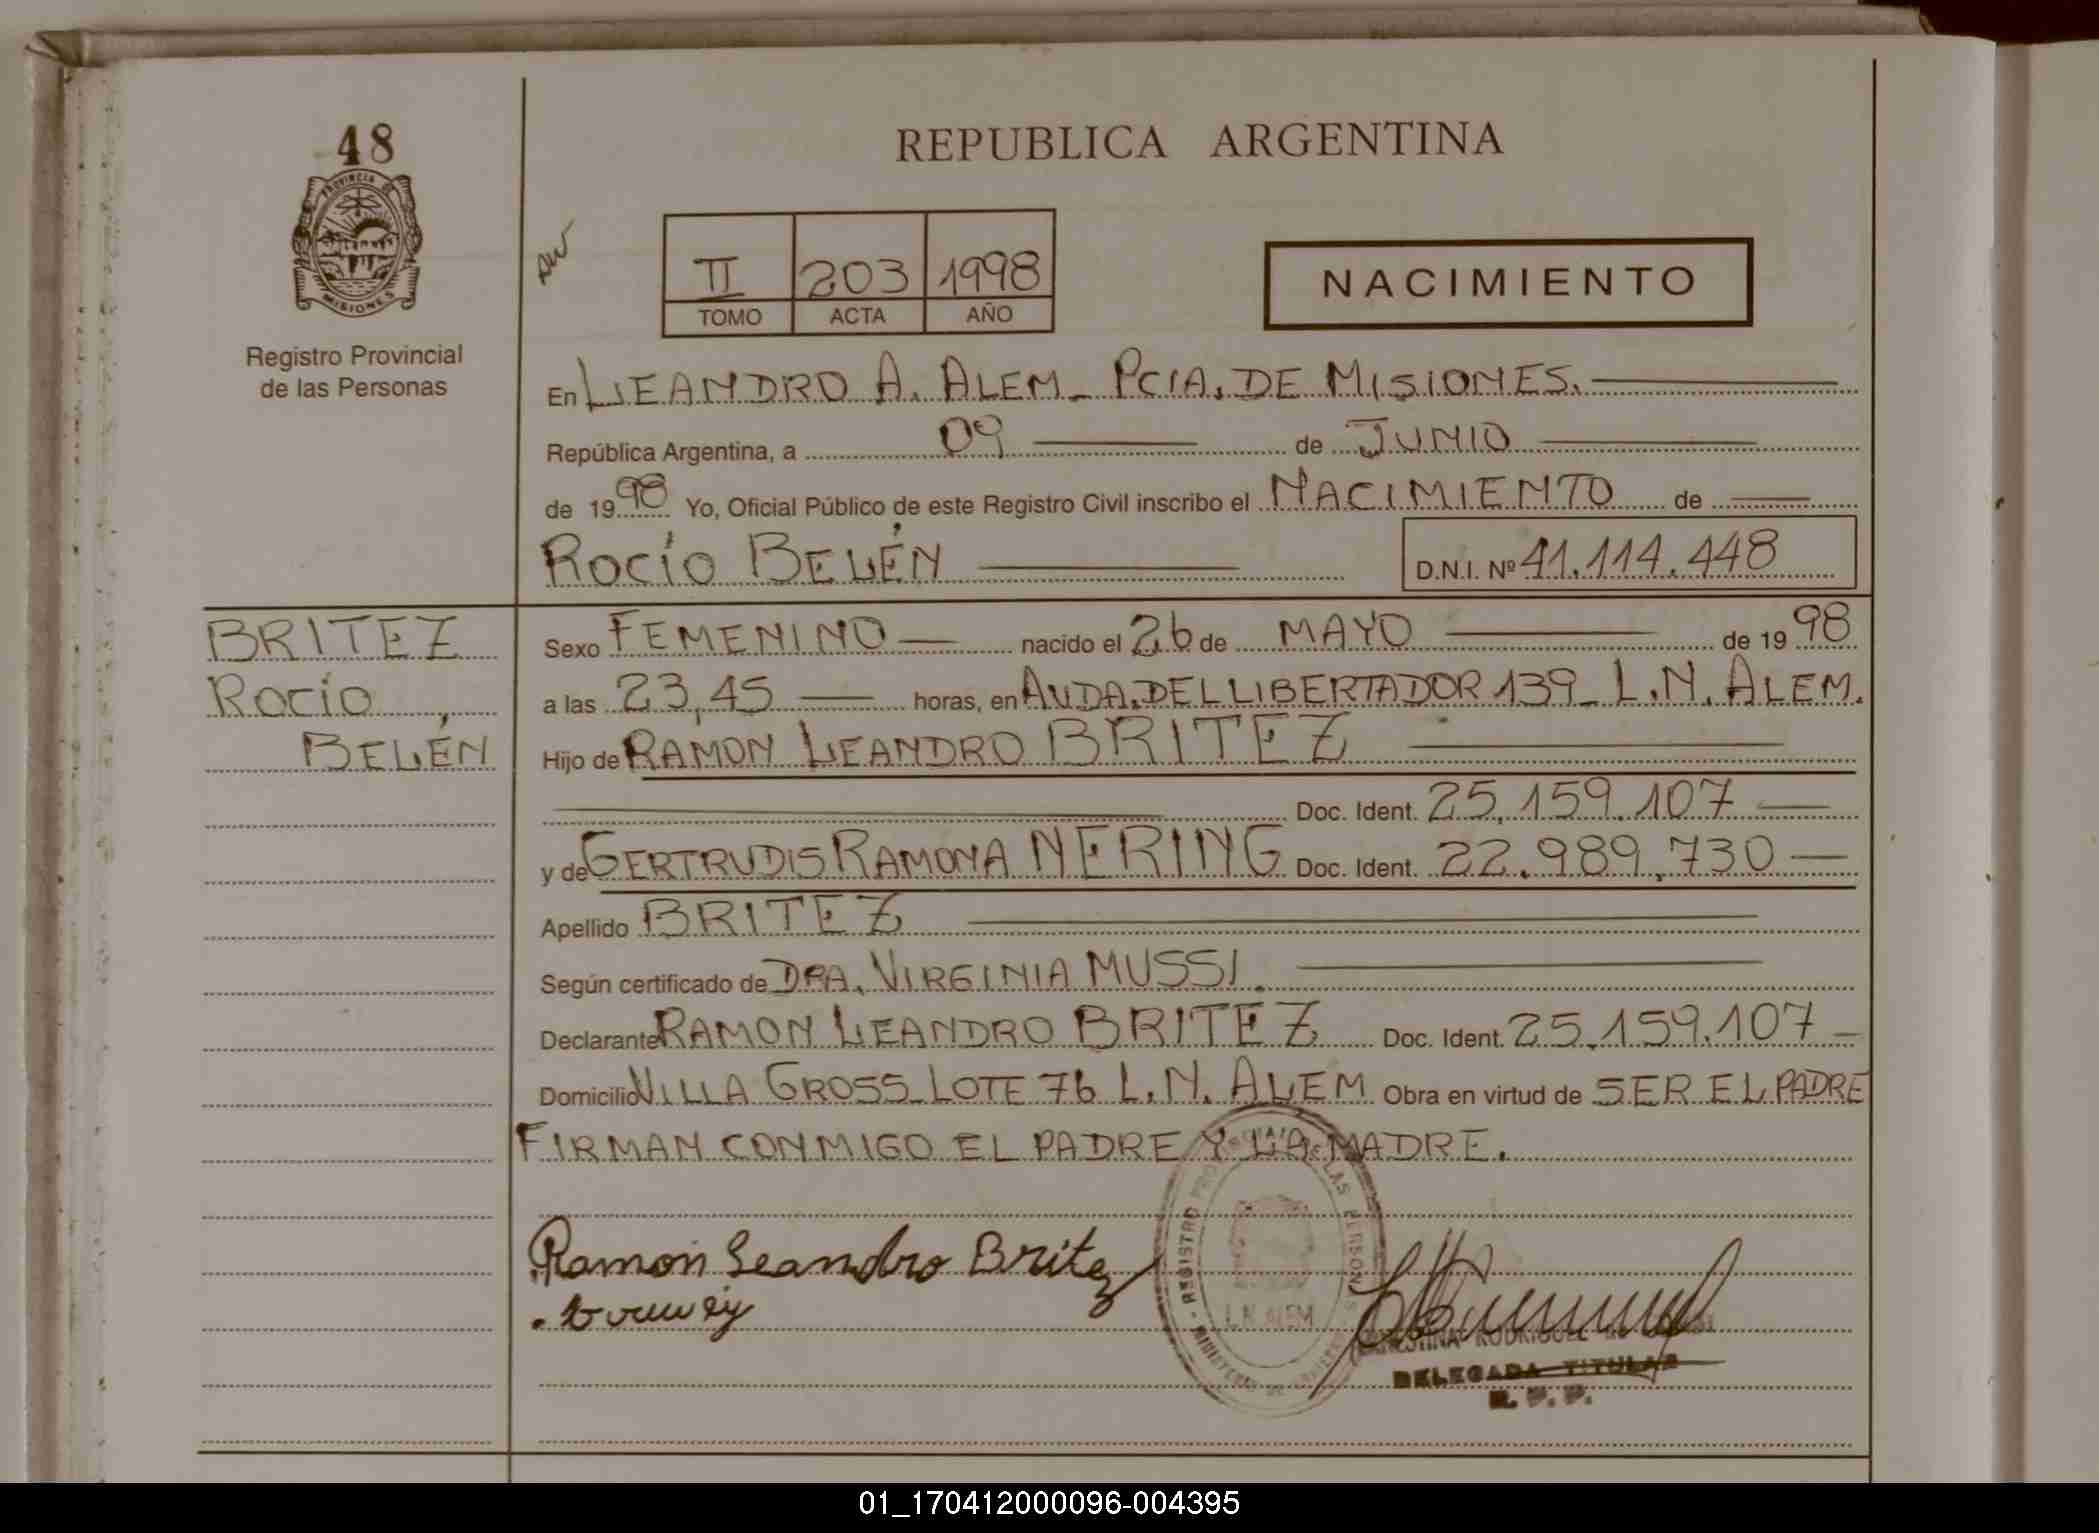 48
PROVINCIA DE
MISIONES
Registro Provincial
de las Personas
REPUBLICA ARGENTINA
II 203 1998
TOMO ACTA AÑO
NACIMIENTO
En LEANDRO N. ALEM - PCIA. DE MISIONES.
República Argentina, a 09 de JUNIO
de 1998 Yo, Oficial Público de este Registro Civil inscribo el NACIMIENTO de
ROCÍO BELÉN D.N.I. Nº 41.114.448
BRITEZ
ROCÍO
BELÉN
Sexo FEMENINO nacido el 26 de MAYO de 1998
a las 23,45 horas, en AVDA. DEL LIBERTADOR 139 - L.N. ALEM.
Hijo de RAMON LEANDRO BRITEZ
Doc. Ident. 25.159.107
y de GERTRUDIS RAMONA NERING Doc. Ident. 22.989.730
Apellido BRITEZ
Según certificado de DRA. VIRGINIA MUSSI.
Declarante RAMON LEANDRO BRITEZ Doc. Ident. 25.159.107
Domicilio VILLA GROSS LOTE 76 L.N. ALEM Obra en virtud de SER EL PADRE
FIRMAN CONMIGO EL PADRE Y LA MADRE.
Ramon Leandro Britez
REGISTRO PROVINCIAL DE LAS PERSONAS
L.N. ALEM
MINISTERIO DE
RODRIGUEZ
DELEGADA TITULAR
R. P. P.
01_170412000096-004395